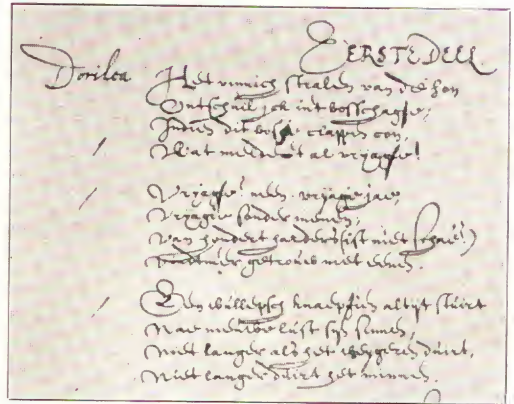 EERSTE DEEL.
Dorilea Het vinnich stralen van de Son
Ontschuil jck int bosschagje;
Indien dit bosje clappen con,
Wat meldet al vrijagje!
Vrijagje? neen. vrijagje jae,
Vrijagje sonder meenen;
Van hondert harders ist niet schae?)
Vindtmer getrouw niet eenen.
Een wullepsch knaepjen altijt stuirt
Nae nieuwe lust sijn sinnen,
Niet langer als het weygeren duirt,
Niet langer duirt het minnen.